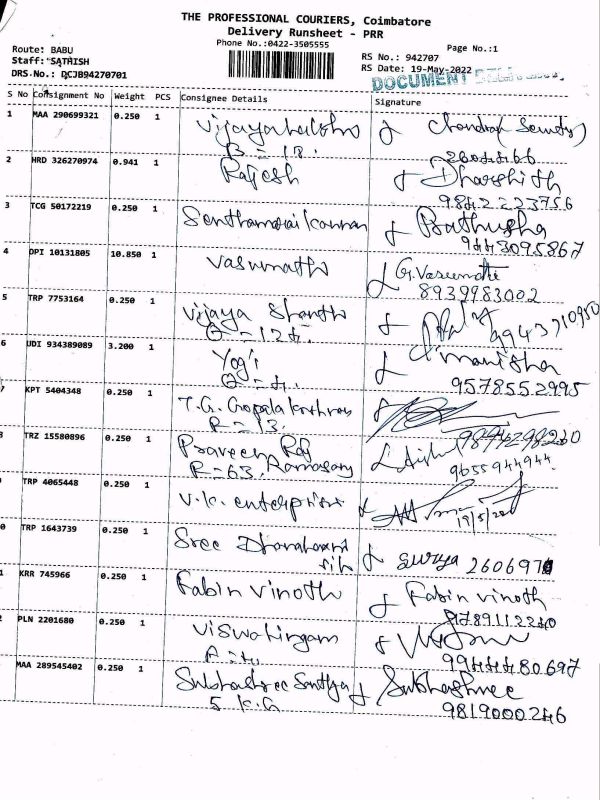 THE PROFESSIONAL COURIERS, Coimbatore
Delivery Runsheet - PRR
Phone No.:0422-3505555
Page No.:1
Route: BABU
Staff: SATHISH
DRS.No.: DCJB94270701
RS No.: 942707
RS Date: 19-May-2022
DOCUMENT
S No Consignment No Weight PCS Consignee Details Signature
1 MAA 290699321 0.250 1
2 HRD 326270974 0.941 1 Rajesh Dharshith
9842223756
3 TCG 50172219 0.250 1 Senthamaraikannan Prathusha
9443095867
4 DPI 10131805 10.850 1 Vasumathi G. Vasumathi
8939983002
5 TRP 7753164 0.250 1 Vijaya Shanthi
9943710950
6 UDI 934389089 3.200 1 Yogi manisha
9578552995
7 KPT 5404348 0.250 1 T.G. Gopalakrishnan
R = 13.
TRZ 15580896 0.250 1 Praveen Raj
R = 63, Ramasamy 9655944944
TRP 4065448 0.250 1 V.K. enterprises
19/5/
0 TRP 1643739 0.250 1 Sree Surya 260697
1 KRR 745966 0.250 1 Fabin Vinoth Fabin vinoth
8789112240
PLN 2201680 0.250 1 Viswalingam
9944480697
MAA 289545402 0.250 1 Subhashree Santhya Subhashree
5 K.G 9819000246